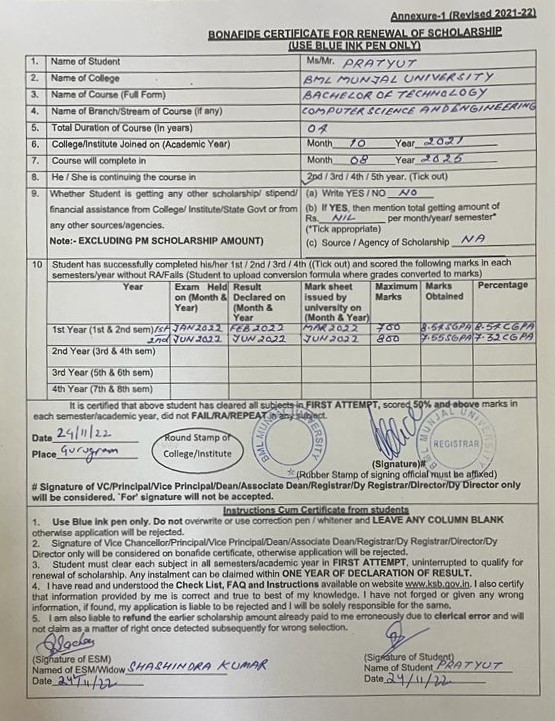 Annexure-1 (Revised 2021-22)
BONAFIDE CERTIFICATE FOR RENEWAL OF SCHOLARSHIP
(USE BLUE INK PEN ONLY)
1. Name of Student Ms/Mr. PRATYUT
2. Name of College BML MUNJAL UNIVERSITY
3. Name of Course (Full Form) BACHELOR OF TECHNOLOGY
4. Name of Branch/Stream of Course (if any) COMPUTER SCIENCE AND ENGINEERING
5. Total Duration of Course (In years) 04
6. College/Institute Joined on (Academic Year) Month 10 Year 2021
7. Course will complete in Month 08 Year 2025
8. He / She is continuing the course in 2nd / 3rd / 4th / 5th year. (Tick out)
9. Whether Student is getting any other scholarship/ stipend/ (a) Write YES / NO NO
financial assistance from College/ Institute/State Govt or from (b) If YES, then mention total getting amount of
any other sources/agencies. Rs. NIL per month/year/ semester*
(*Tick appropriate)
Note:- EXCLUDING PM SCHOLARSHIP AMOUNT) (c) Source / Agency of Scholarship NA
10 Student has successfully completed his/her 1st / 2nd / 3rd / 4th ((Tick out) and scored the following marks in each
semesters/year without RA/Fails (Student to upload conversion formula where grades converted to marks)
Year Exam Held on (Month & Year) Result Declared on (Month & Year Mark sheet issued by university on (Month & Year) Maximum Marks Marks Obtained Percentage
1st Year (1st & 2nd sem) 1st JAN 2022 FEB 2022 MAR 2022 700 8.54 SGPA 8.54 CGPA
2nd JUN 2022 JUN 2022 JUN 2022 800 7.55 SGPA 7.32 CGPA
2nd Year (3rd & 4th sem)
3rd Year (5th & 6th sem)
4th Year (7th & 8th sem)
It is certified that above student has cleared all subjects in FIRST ATTEMPT, scored 50% and above marks in
each semester/academic year, did not FAIL/RA/REPEAT in any subject.
Date 24/11/22
Place Gurugram
Round Stamp of
College/Institute
BML MUNJAL UNIVERSITY
BML MUNJAL UNIVERSITY
REGISTRAR
(Signature)#
(Rubber Stamp of signing official must be affixed)
# Signature of VC/Principal/Vice Principal/Dean/Associate Dean/Registrar/Dy Registrar/Director/Dy Director only
will be considered. `For' signature will not be accepted.
Instructions Cum Certificate from students
1. Use Blue ink pen only. Do not overwrite or use correction pen / whitener and LEAVE ANY COLUMN BLANK
otherwise application will be rejected.
2. Signature of Vice Chancellor/Principal/Vice Principal/Dean/Associate Dean/Registrar/Dy Registrar/Director/Dy
Director only will be considered on bonafide certificate, otherwise application will be rejected.
3. Student must clear each subject in all semesters/academic year in FIRST ATTEMPT, uninterrupted to qualify for
renewal of scholarship. Any instalment can be claimed within ONE YEAR OF DECLARATION OF RESULT.
4. I have read and understood the Check List, FAQ and Instructions available on website www.ksb.gov.in. I also certify
that information provided by me is correct and true to best of my knowledge. I have not forged or given any wrong
information, if found, my application is liable to be rejected and I will be solely responsible for the same.
5. I am also liable to refund the earlier scholarship amount already paid to me erroneously due to clerical error and will
not claim as a matter of right once detected subsequently for wrong selection.
(Signature of ESM) (Signature of Student)
Named of ESM/Widow SHASHINDRA KUMAR Name of Student PRATYUT
Date 24/11/22 Date 24/11/22